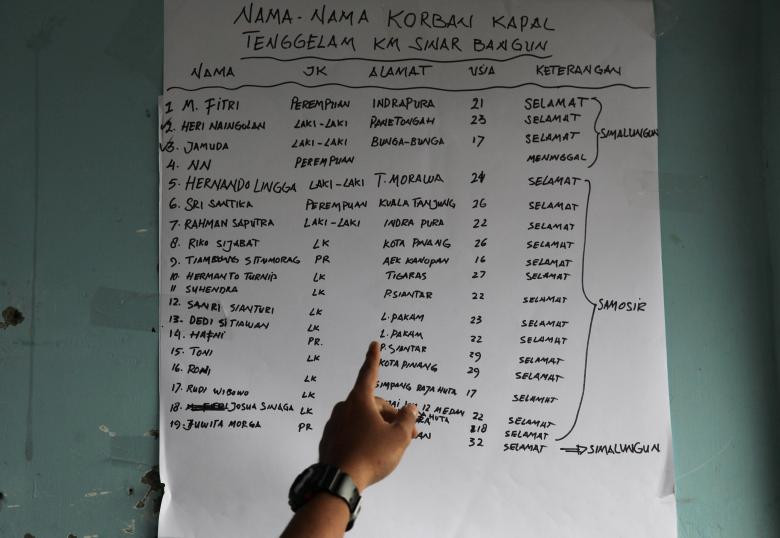 NAMA-NAMA KORBAN KAPAL
TENGGELAM KM SINAR BANGUN
NAMA JK ALAMAT USIA KETERANGAN
1 M. FITRI PEREMPUAN INDRAPURA 21 SELAMAT
2. HERI NAINGOLAN LAKI-LAKI PANETONGAH 23 SELAMAT SIMALUNGUN
3. JAMUDA LAKI-LAKI BUNGA-BUNGA 17 SELAMAT
4. NN PEREMPUAN MENINGGAL
5. HERNANDO LINGGA LAKI-LAKI T. MORAWA 24 SELAMAT
6. SRI SANTIKA PEREMPUAN KUALA TANJUNG 26 SELAMAT
7. RAHMAN SAPUTRA LAKI-LAKI INDRA PURA 22 SELAMAT
8. RIKO SIJABAT LK KOTA PINANG 26 SELAMAT
9. TIAMBUNG SITUMORAG PR AEK KANOPAN 16 SELAMAT
10. HERMANTO TURNIP LK TIGARAS 27 SELAMAT
11 SUHENDRA LK P.SIANTAR 22 SELAMAT
12. SANRI SIANTURI LK L.PAKAM 23 SELAMAT SAMOSIR
13. DEDI SETIAWAN LK L.PAKAM 22 SELAMAT
14. HAFNI PR. P.SIANTAR 29 SELAMAT
15. TONI LK KOTA PINANG 29 SELAMAT
16. RONI LK SIMPANG RAJA HUTA 17 SELAMAT
17. RUDI WIBOWO LK 12 MEDAN 22 SELAMAT
18. JOSUA SINAGA LK HUTA 18 SELAMAT
19. JUWITA MORGA PR 32 SELAMAT SIMALUNGUN